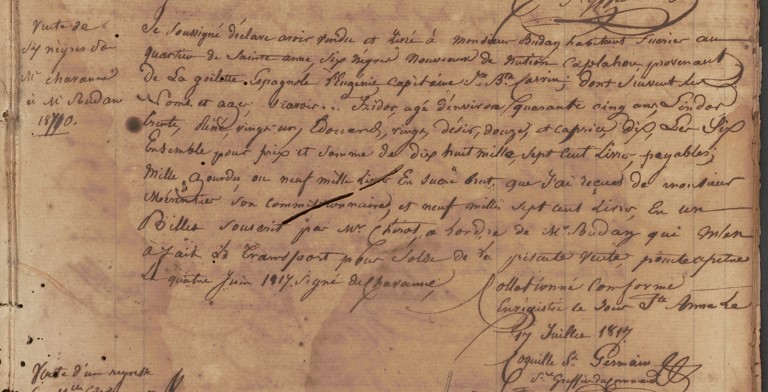 Vente de
six nègres par
Mr charanné
à Mr Budan
18700.
Je soussigné déclare avoir vendu et livré à Monsieur Budan habitant sucrier au
quartier de Sainte anne, six nègres nouveaux de nation Caplahou, provenant
de La goëlette Espagnole L'Eugénie, Capitaine Jn Bte dont suivent les
Noms et ages, Savoir... Izidor, agé d'environ quarante cinq ans, Lindor
trente, René, vingt un, Edouard, vingt, désir, douze, et caprice dix, Les Six
Ensemble pour prix et somme de dix huit mille, sept cent Livres payables;
Mille gourdes ou neuf mille Livres En Sucre brut que j'ai reçues de monsieur
son commissionnaire, et neuf mille sept cent Livres, En un
Billet souscrit par Mr. à l'ordre de Mr Budan qui m'en
a fait le transport pour solde de la présente vente,
Le quatre Juin 1817. Signé de Charanné,
Collationné conforme
Enregistré le Jour Ste Anne Le
17 Juillet 1817
Coquille St Germain
Vente d'un negresse